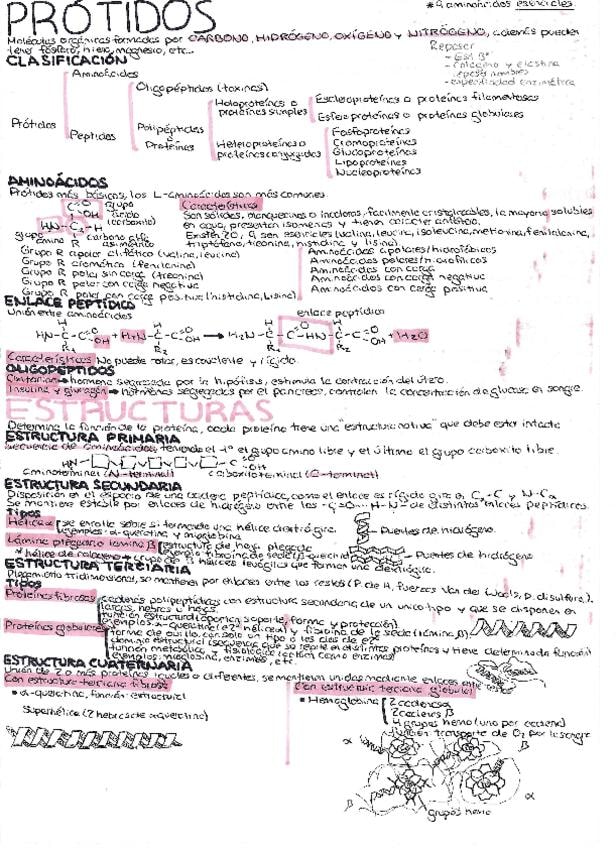 PRÓTIDOS
* 9 aminoácidos esenciales
Moléculas orgánicas formadas por CARBONO, HIDRÓGENO, OXÍGENO y NITRÓGENO, además pueden
tener fósforo, hierro, magnesio, etc...
Repasar
- colágeno y elastina
- especificidad enzimática
CLASIFICACIÓN
Aminoácidos
Oligopéptidos (toxinas)
Holoproteínas o
proteínas simples
Escleroproteínas o proteínas filamentosas
Esferoproteínas o proteínas globulares
Prótidos
Peptidos
Polipéptidos
o
Proteínas
Heteroproteínas o
proteínas conjugadas
Fosfoproteínas
Cromoproteínas
Glucoproteínas
Lipoproteínas
Nucleoproteínas
AMINOÁCIDOS
Prótidos más básicos, los L-aminoácidos son más comunes.
grupo
ácido
(carboxilo)
Características
Son sólidos, blanquecinos o incoloros, facilmente cristalizables, la mayoría solubles
en agua, presentan isomería y tienen carácter anfótero.
Existen 20, 9 son esenciales (valina, leucina, isoleucina, metionina, fenilalanina,
triptófano, treonina, histidina y lisina)
grupo
amino
carbono alfa
asimétrico
Grupo R apolar alifático (valina, leucina)
Grupo R aromático (fenilanina)
Grupo R polar sin carga (treonina)
Grupo R polar con carga negativa
Grupo R polar con carga positiva (histidina, lisina)
Aminoácidos apolares/hidrofóbicos
Aminoácidos polares/hidrofílicos
Aminoácidos con carga
Aminoácidos con carga negativa
Aminoácidos con carga positiva
ENLACE PEPTÍDICO
Unión entre aminoácidos
enlace peptídico
Características No puede rotar, es covalente y rígido.
OLIGOPÉPTIDOS
Oxitocina → hormona segregada por la hipófisis, estimula la contracción del útero.
Insulina y glucagón → hormonas segregadas por el pancreas, controlan la concentración de glucosa en sangre.
ESTRUCTURAS
Determina la función de la proteína, cada proteína tiene una "estructura nativa" que debe estar intacta
ESTRUCTURA PRIMARIA
Secuencia de aminoácidos, teniendo el 1º el grupo amino libre y el último el grupo carboxilo libre.
aminoterminal (N-terminal)
carboxiloterminal (C-terminal)
ESTRUCTURA SECUNDARIA
Disposición en el espacio de una cadena peptídica, como el enlace es rígido gira en Cα-C y N-Cα
Se mantiene estable por enlaces de hidrógeno entre los -C=O···H-N- de distintos enlaces peptídicos.
Tipos
Hélice α
se enrolla sobre si formando una hélice dextrógira.
ejemplos α-queratina y mioglobina
Puentes de hidrógeno.
Lámina plegada o lámina β
estructura de hoja plegada
Puentes de hidrógeno
* hélice de colágeno
ESTRUCTURA TERCIARIA
Plegamiento tridimensional, se mantiene por enlaces entre los restos (P. de H, fuerzas Van der Waals, P. disulfuro).
Tipos
Proteínas fibrosas
cadenas polipeptídicas con estructura secundaria de un unico tipo y que se disponen en
largas hebras u hojas.
función estructural (aportan soporte, forma y protección)
Proteínas globulares
forma de ovillo, con solo un tipo o los dos de eª
dominio estructural (secuencia que se repite en distintas proteínas y tiene determinada función)
ESTRUCTURA CUATERNARIA
Unión de 2 o más proteínas iguales o diferentes, se mantienen unidas mediante enlaces
Con estructura terciaria fibrosa
* α-queratina, función estructural
Superhélice (2 hebras de α queratina)
Con estructura terciaria globular
* Hemoglobina
2 cadenas α
2 cadenas β
4 grupos hemo (uno por cadena)
función transporte de O2 por la sangre
α
β
β
α
grupos hemo